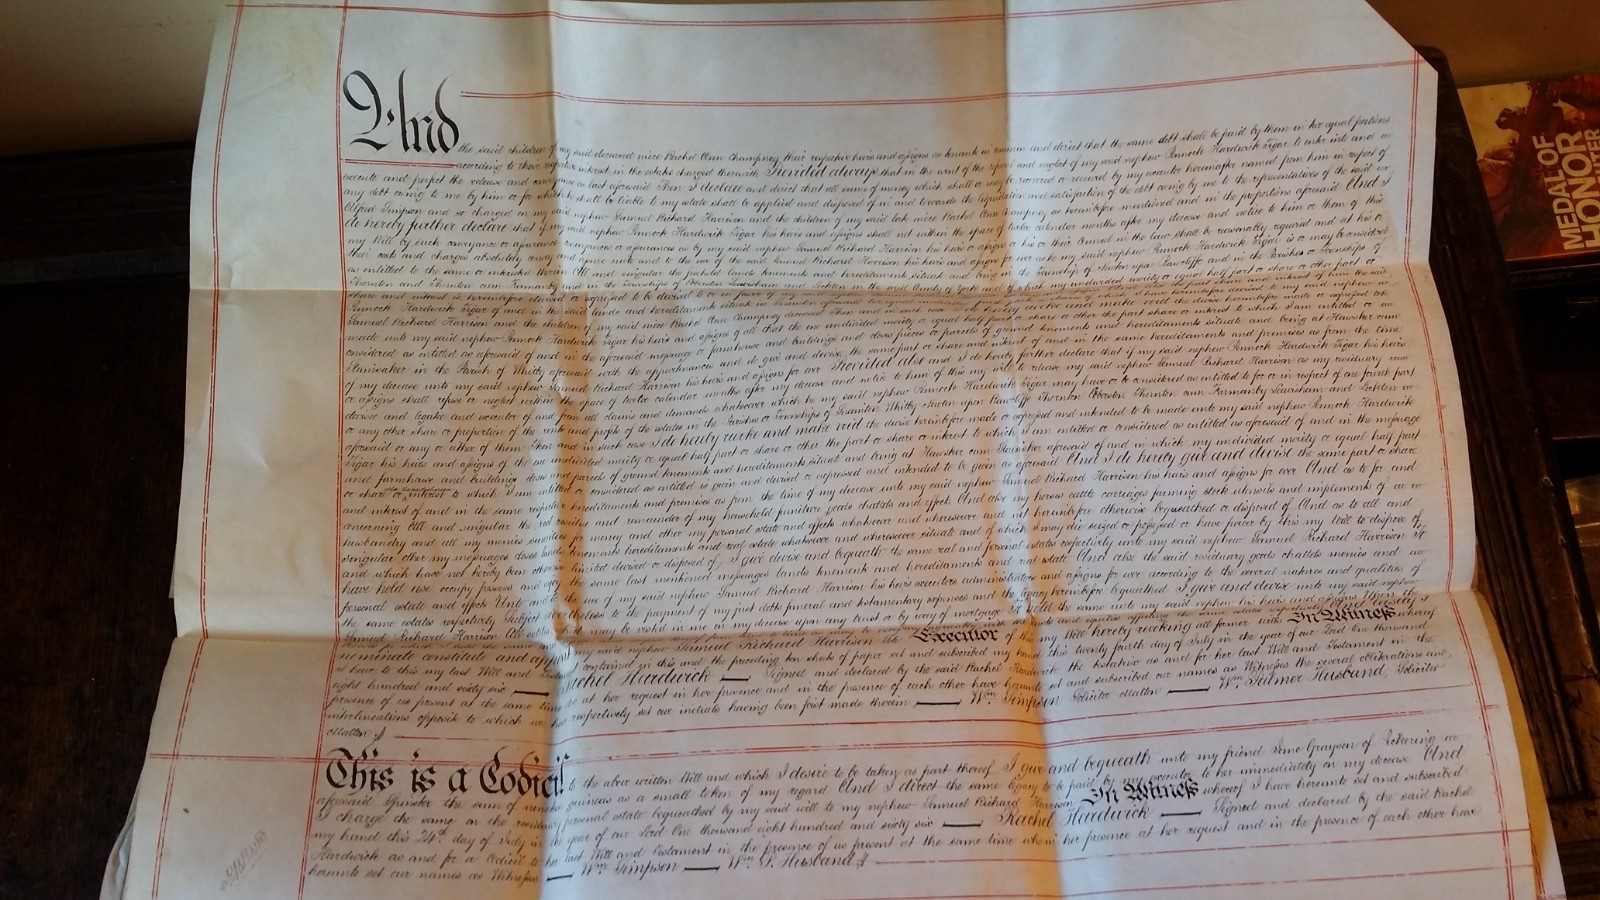 And
the said children of my said deceased niece Rachel Ann Champney their respective heirs and assigns as tenants in common and direct that the same debt shall be paid by them in two equal portions
according to their respective interest in the estates charged therewith Provided always that in the event of the refusal and neglect of my said nephew Pennock Hardwick Tigar to enter into and
execute and perfect the release and as last aforesaid Then I declare and direct that all sums of money which shall or may be received or recovered by my executor hereinafter named from him in respect of
any debt owing to me by him or for which shall be liable to my estate shall be applied and disposed of in and towards the liquidation and satisfaction of the debt owing by me to the representatives of the said
Alfred Simpson and so charged on my said nephew Samuel Richard Harrison and the children of my said late niece Rachel Ann Champney as hereinbefore mentioned and in the proportions aforesaid And I
do hereby further declare that if my said nephew Pennock Hardwick Tigar his heirs and assigns shall not within the space of twelve calendar months after my decease and notice to him or them of this
my Will by such conveyance or assurance conveyances or assurances as by my said nephew Samuel Richard Harrison his heirs or assigns or his or their Counsel in the law shall be reasonably required and at his or
their costs and charges absolutely convey and assure unto and to the use of the said Samuel Richard Harrison his heirs and assigns for ever as my said nephew Pennock Hardwick Tigar is or may be considered
as entitled to the same or interested therein All and singular the freehold lands tenements and hereditaments situate and being in the Township of Newton upon Rawcliffe and in the Parishes or Townships of
Thornton and Thornton cum Farmanby and in the Townships of Ebberston Levisham and Lockton in the said County of York and of which my undivided moiety or equal half part or share or other part or
share and interest is hereinbefore devised or expressed to be devised to
Pennock Hardwick Tigar of and in the said lands and hereditaments situate in aforesaid Then and in such case I do hereby revoke and make void the devise hereinbefore made or expressed to be
made unto my said nephew Pennock Hardwick Tigar his heirs and assigns of all that the one undivided moiety or equal half part or share or other the part share or interest to which I am entitled or
considered as entitled as aforesaid of and in the aforesaid messuage or farmhouse and buildings and closes pieces or parcels of ground tenements and hereditaments situate and being at Hawsker cum
Stainsaker in the Parish of Whitby aforesaid with the appurtenances and do give and devise the same part or share and interest of and in the same hereditaments and premises as from the time
of my decease unto my said nephew Samuel Richard Harrison his heirs and assigns for ever Provided also and I do hereby further declare that if my said nephew Pennock Hardwick Tigar his heirs
or assigns shall refuse or neglect within the space of twelve calendar months after my decease and notice to him of this my will to release my said nephew Samuel Richard Harrison as my residuary
devisee and legatee and executor of and from all claims and demands whatsoever which he my said nephew Pennock Hardwick Tigar may have or be considered as entitled to for or in respect of one fourth part
or any other share or proportion of the rents and profits of the estates in the Parishes or Townships of Whitby Newton upon Rawcliffe Thornton Ebberston Thornton cum Farmanby Levisham and Lockton
aforesaid or any or either of them Then and in such case I do hereby revoke and make void the devise hereinbefore made or expressed and intended to be made unto my said nephew Pennock Hardwick
Tigar his heirs and assigns of the one undivided moiety or equal half part or share or other the part or share or interest to which I am entitled or considered as entitled as aforesaid of and in the messuage
and farmhouse and buildings closes and parcels of ground tenements and hereditaments situate and being at Hawsker cum Stainsaker aforesaid of and in which my undivided moiety or equal half part
or share or interest to which I am entitled or considered as entitled is given and devised or expressed and intended to be given as aforesaid And I do hereby give and devise the same part or share
and interest of and in the same respective hereditaments and premises as from the time of my decease unto my said nephew Samuel Richard Harrison his heirs and assigns for ever And as to for and
concerning All and singular the rest residue and remainder of my household furniture goods chattels and effects And also my horses cattle carriages farming stock utensils and implements of
husbandry and all my monies securities for money and other my personal estate and effects whatsoever and wheresoever and not hereinbefore otherwise bequeathed or disposed of And as to all and
singular other my messuages closes lands tenements hereditaments and real estate whatsoever and wheresoever situate and of which I may die seized or possessed or have power by this my Will to dispose of
and which have not hereby been otherwise limited devised or disposed of I give devise and bequeath the same real and personal estates respectively unto my said nephew Samuel Richard Harrison To
have hold use occupy possess and enjoy the same last mentioned messuages lands tenements and hereditaments and real estate And also the said residuary goods chattels monies and
personal estate and effects Unto and to the use of my said nephew Samuel Richard Harrison his heirs executors administrators and assigns for ever according to the several natures and qualities of
the same estates respectively Subject nevertheless to the payment of my just debts funeral and testamentary expenses and the legacy hereinbefore bequeathed I give and devise unto my said nephew
Samuel Richard Harrison All estates may be vested in me on my decease upon any trust or by way of mortgage To hold the same unto my said nephew his heirs and assigns Upon the
nominate constitute and appoint my said nephew Samuel Richard Harrison sole Executor of this my Will hereby revoking all former wills In Witness whereof
I have to this my last Will and Testament contained in this and the preceding ten sheets of paper set and subscribed my hand this twenty fourth day of July in the year of our Lord One thousand
eight hundred and sixty six Rachel Hardwick Signed and declared by the said Rachel Hardwick the testatrix as and for her last Will and Testament in the
presence of us present at the same time who at her request in her presence and in the presence of each other have hereunto set and subscribed our names as Witnesses the several obliterations and
interlineations opposite to which we have respectively set our initials having been first made therein Wm Simpson Solicitor Malton Wm Palmer Husband, Solicitor
Malton
This is a Codicil to the above written Will and which I desire to be taken as part thereof I give and bequeath unto my friend Jane Grayson of Pickering
aforesaid Spinster the sum of nineteen guineas as a small token of my regard And I direct the same legacy to be paid by my executor to her immediately on my decease And
I charge the same on the residuary personal estate bequeathed by my said will to my nephew Samuel Richard Harrison In Witness whereof I have hereunto set and subscribed
my hand this 24th day of July in the year of our Lord One thousand eight hundred and sixty six Rachel Hardwick Signed and declared by the said Rachel
Hardwick as and for a Codicil to her last Will and Testament in the presence of us present at the same time who in her presence at her request and in the presence of each other have
hereunto set our names as Witnesses Wm Simpson Wm P. Husband
MEDAL OF
HONOR